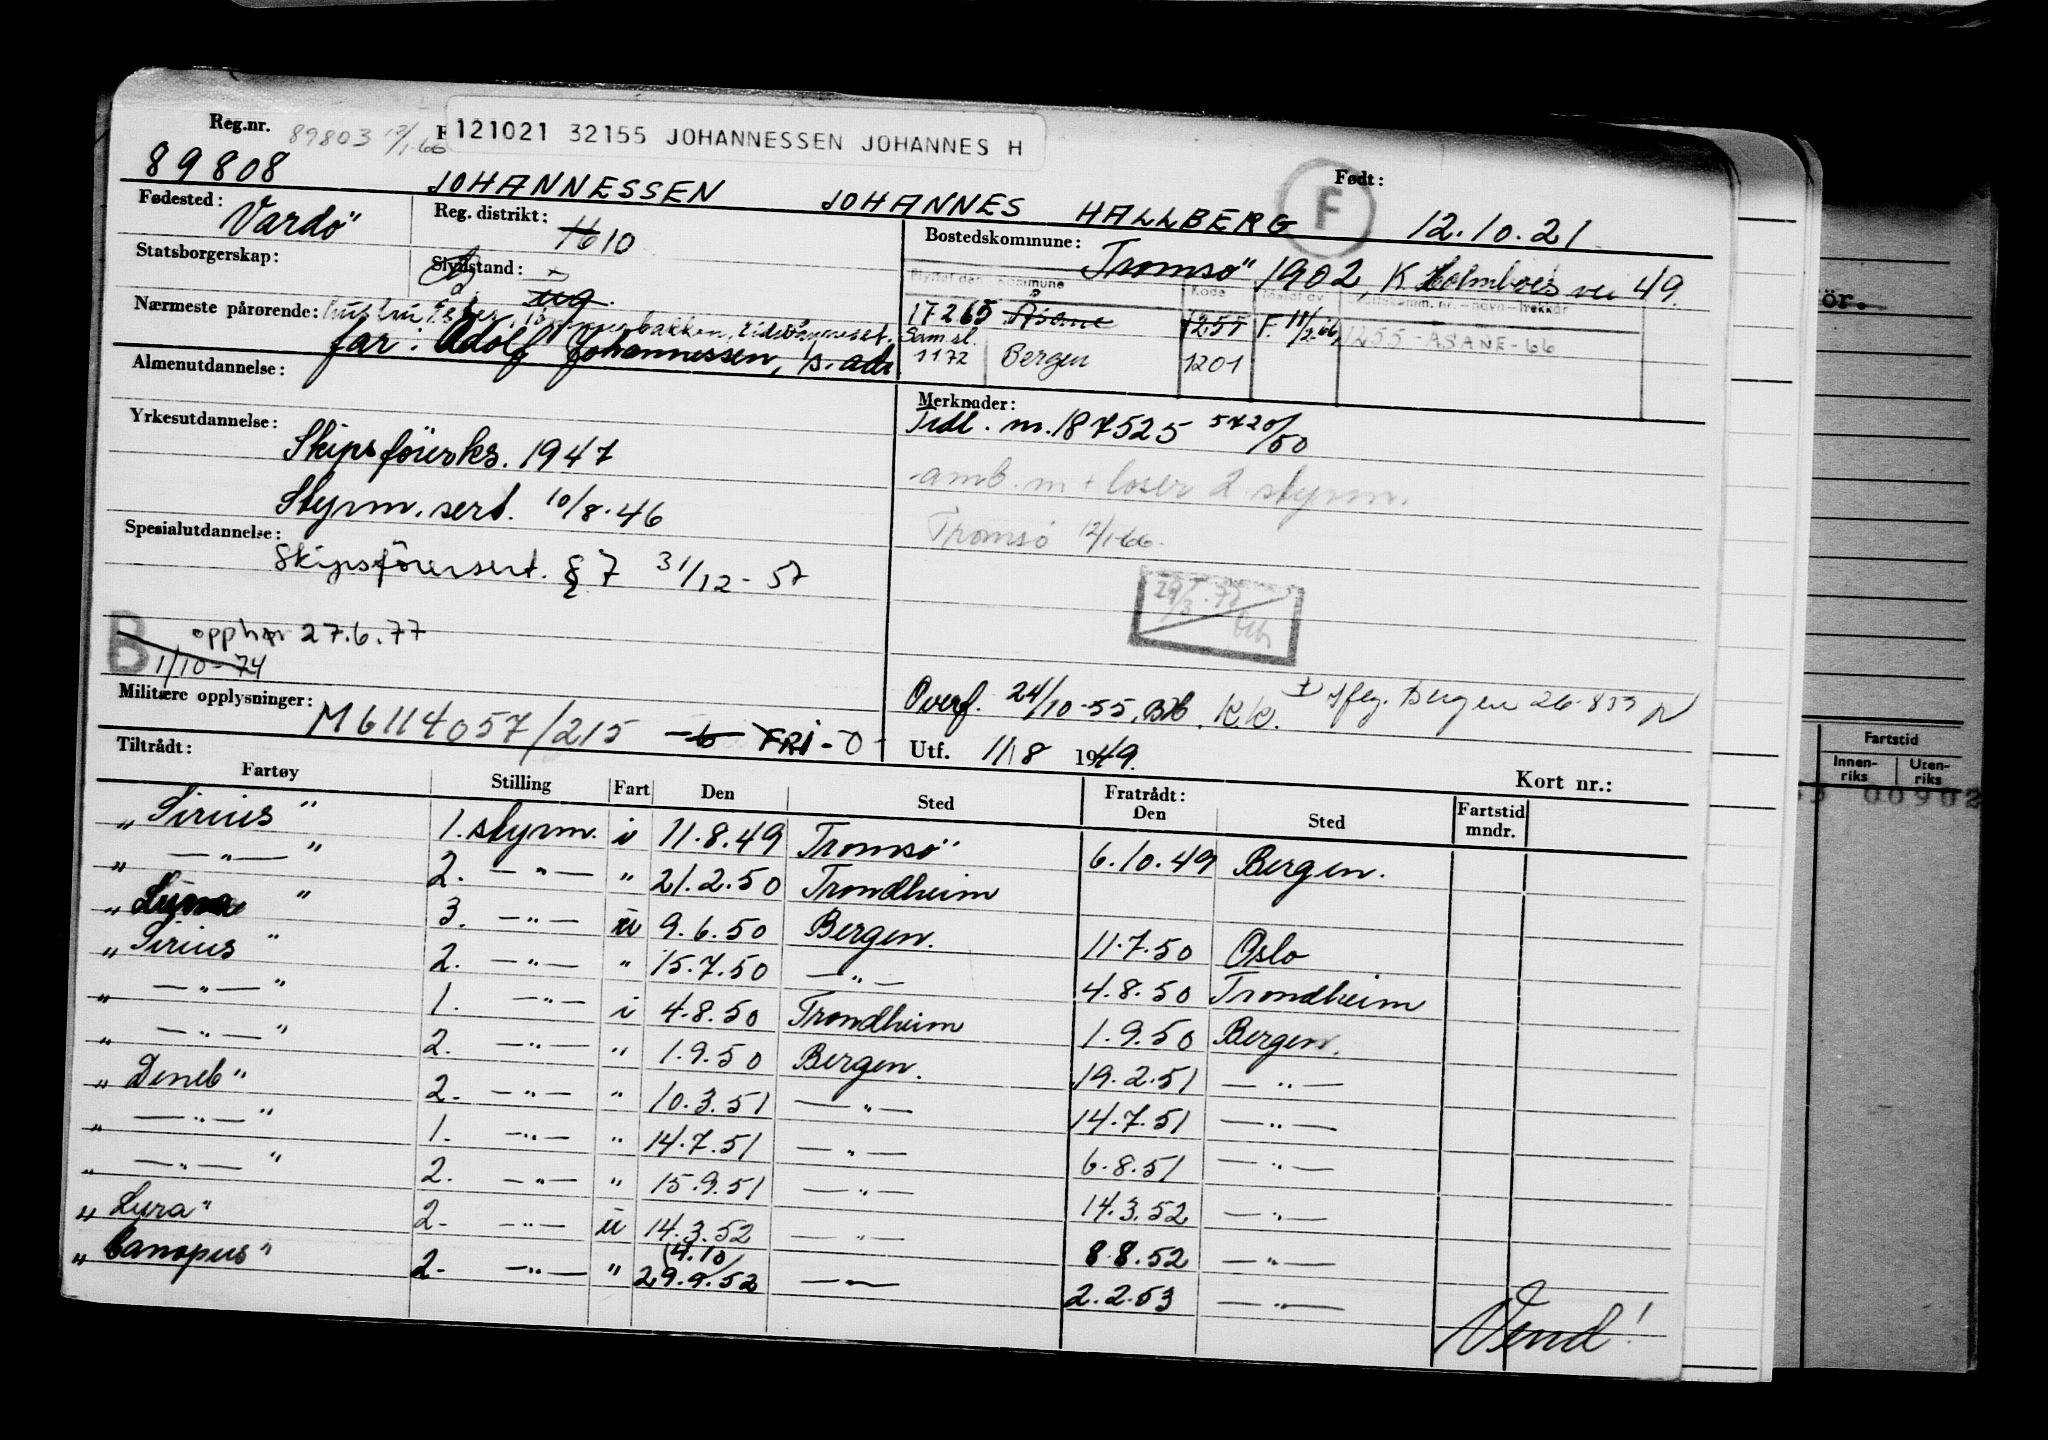 Reg.nr. 89803 12/1-66
121021 32155 JOHANNESSEN JOHANNES H
89808 JOHANNESSEN JOHANNES HALLBERG F Født: 12.10.21
Fødested: Vardö
Reg. distrikt: 10
Bostedskommune: Tromsö 1902, K Holmboes vei 49.
Statsborgerskap:
kommune Kode
17265 Åsane 1255 F. 11/2-66, 1255 - ÅSANE - 66
Sam.sl.
1172 Bergen 1201
Nærmeste pårørende:
far: Adolf Johannessen, s. adr
Almenutdannelse:
Yrkesutdannelse: Skipsförerks. 1947
Styrm. sert. 10/8-46
Merknader: Tidl. m. 187525 5720/50
amb. m + loser 2. styrm.
Tromsö 12/1-66.
Spesialutdannelse: Skipsförersert. § 7 31/12-57
B opphør 27.6.77
1/10-74
Overf. 24/10-55,
Militære opplysninger: M6114057/215 FRI-0-
Utf. 11/8 1949.
Kort nr.:
Tiltrådt:
Fartøy Stilling Fart Den Sted Fratrådt: Den Sted Fartstid mndr.
"Sirius" 1. styrm. i 11.8.49 Tromsö 6.10.49 Bergen.
" —"— " 2. —"— " 21.2.50 Trondheim
" " 3. —"— u 9.6.50 Bergen. 11.7.50 Oslo
"Sirius" 2. —"— " 15.7.50 —"— 4.8.50 Trondheim
" —"— " 1. —"— i 4.8.50 Trondheim 1.9.50 Bergen.
" —"— " 2. —"— " 1.9.50 Bergen. 19.2.51 —"—
"Deneb" 2. —"— " 10.3.51 —"— 14.7.51 —"—
" —"— " 1. —"— " 14.7.51 —"— 6.8.51 —"—
" —"— " 2. —"— " 15.9.51 —"— 14.3.52 —"—
"Lyra" 2. —"— u 14.3.52 —"— 8.8.52 —"—
"Canopus" 2. —"— " 29.9.52 (4.10) —"— 2.2.53 —"—
Vend!
ör.
Fartstid
Innen-riks Uten-riks
00902